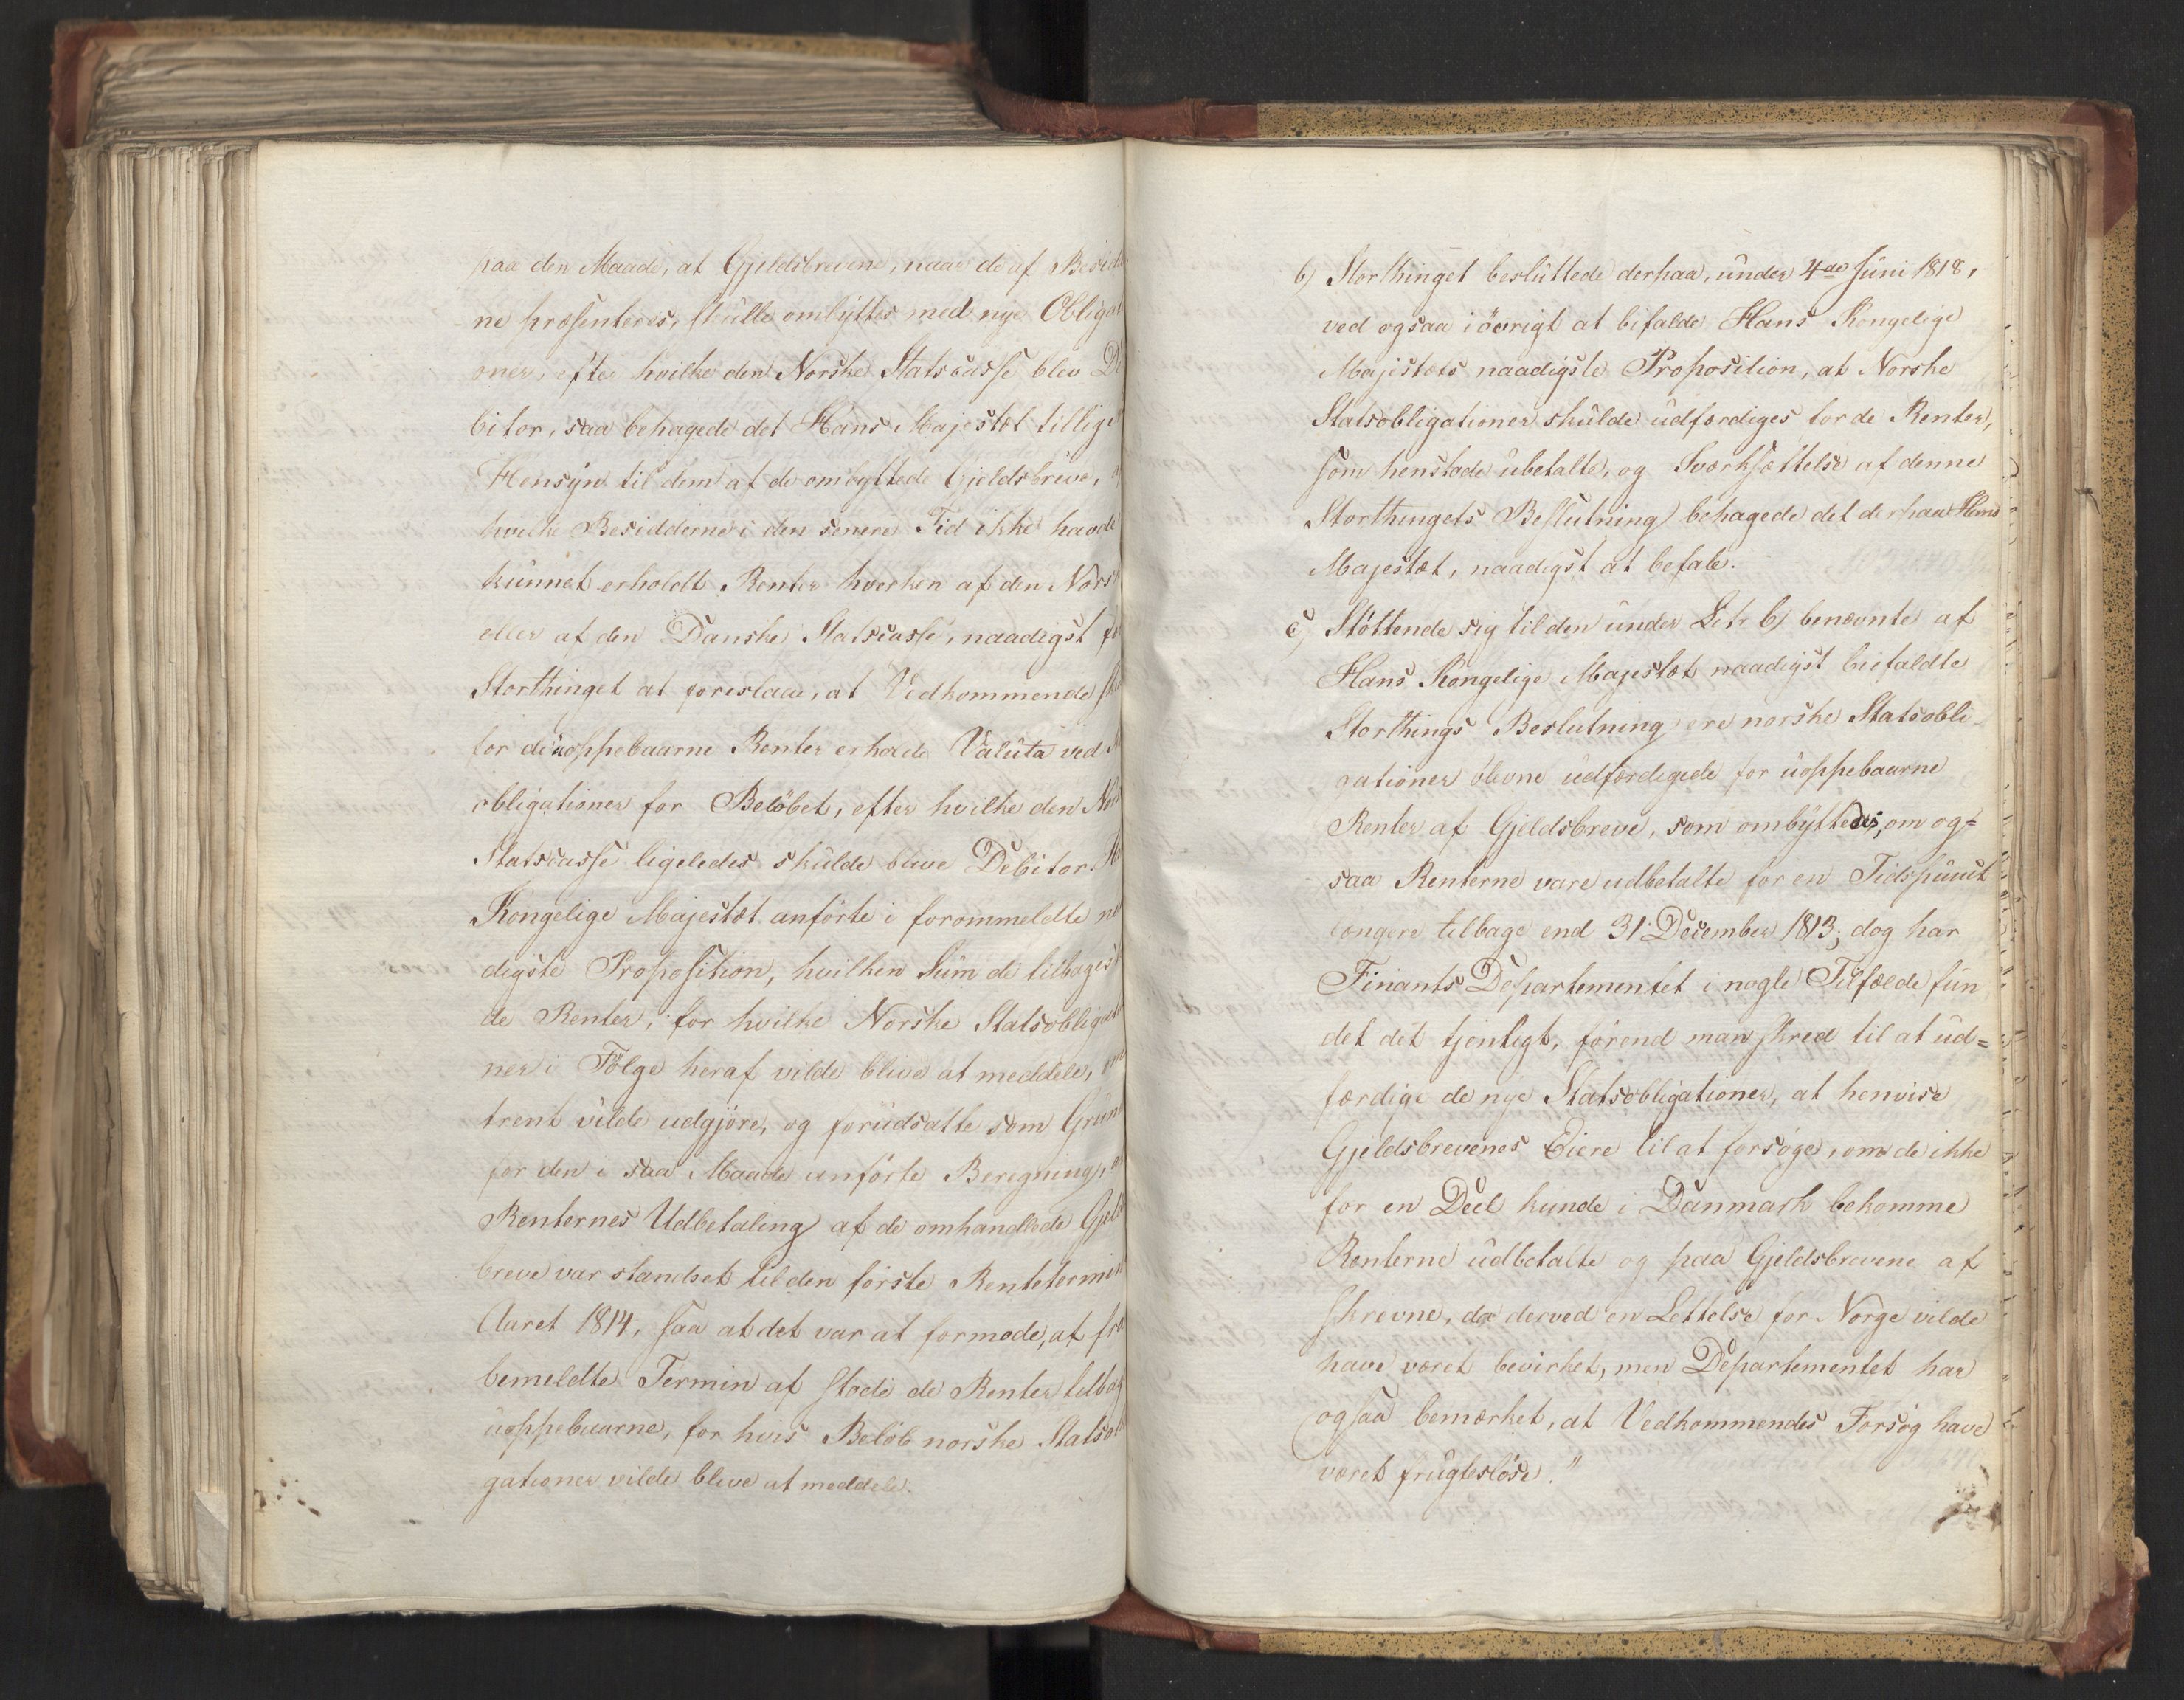 paa den Maade, at Gjeldsbrevene, naar de af Besidd
ne præsenteres, skulle ombyttes med nye Obligat
oner, efter hvilke den Norske Statscasse blev De
bitor, saa behagede det Hans Majestæt tillige
Hensyn til dem af de ombyttede Gjeldsbreve,
hvilke Besidderne i den senere Tid ikke havde
kunnet erholdt Renter hverken af den Nors
eller af den Danske Statscasse, naadigst for
Storthinget at foreslaae, at Vedkommende sku
for de uoppebaarne Renter erholde Valuta ved
obligationer for Beløbet, efter hvilke den Nor
Statscasse ligeledes skulde blive Debitor. Ha
Kongelige Majestæt anførte i forommeldte na
digste Proposition, hvilken Sum de tilbagest
de Renter, for hvilke Norske Statsobligatio
ner i Følge heraf vilde blive at meddele, om
trent vilde udgjøre, og forudsatte som Grun
for den i saa Maade anførte Beregning, a
Renternes Udbetaling af de omhandlede Gjeld
breve var standset til den første Rentetermin
Aaret 1814, saa at det var at formode, at fra
bemeldte Termin af stode de Renter tilbag
uoppebaarne, for hvis Beløb norske Statsob
gationer vilde blive at meddele.
b) Storthinget besluttede derpaa, under 4de Juni 1818,
ved ogsaa i øvrigt at bifalde Hans Kongelige
Majestæts naadigste Proposition, at Norske
Statsobligationer skulde udfærdiges for de Renter,
som henstode ubetalte, og Iværksættelse af denne
Storthingets Beslutning behagede det derpaa Hans
Majestæt, naadigst at befale.
c) Støttende sig til den under Litr b) benævnte af
Hans Kongelige Majestæt naadigst biefaldte
Storthings Beslutning ere norske Statsobli-
gationer blevne udfærdigede for uoppebaarne
Renter af Gjeldsbreve, som ombyttedes, om og=
saa Renterne vare udbetalte for en Tidspunct
længere tilbage end 31 December 1813; dog har
Finants Departementet i nogle Tilfælde fun
det det tjenligt, førend man skred til at ud=
færdige de nye Statsobligationer, at henvise
Gjeldsbrevenes Eiere til at forsøge, om de ikke
for en Deel kunde i Danmark bekomme
Renterne udbetalte og paa Gjeldsbrevene af
skrevne, da derved en Lettelse for Norge vilde
have været bevirket, men Departementet har
ogsaa bemærket, at Vedkommendes Forsøg have
været frugtesløse."